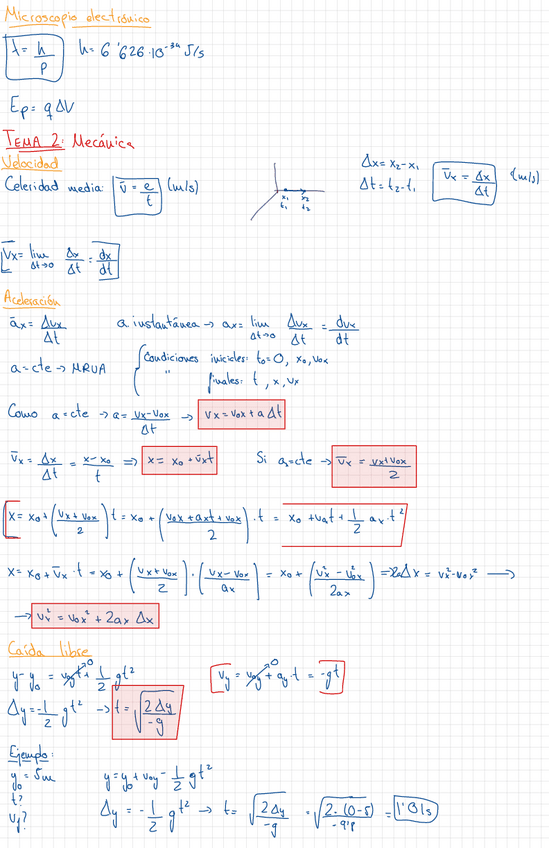 Microscopio electrónico
λ = h/p h = 6'626·10⁻³⁴ J/s
Ep = q ΔV
TEMA 2: Mecánica
Velocidad
Celeridad media: v̄ = e/t (m/s) x₁ x₂ t₁ t₂ Δx = x₂-x₁ Δt = t₂-t₁ v̄x = Δx/Δt (m/s)
v̄x = lim Δt→0 Δx/Δt = dx/dt
Aceleración
āx = Δvx/Δt a instantánea → ax = lim Δt→0 Δvx/Δt = dvx/dt
a = cte → MRUA { Condiciones iniciales: t₀=0, x₀, v₀x
" finales: t, x, vx
Como a = cte → a = (vx-v₀x)/Δt → vx = v₀x + a Δt
v̄x = Δx/Δt = (x-x₀)/t ⇒ x = x₀ + v̄x t Si a = cte → v̄x = (vx+v₀x)/2
x = x₀ + ((vx+v₀x)/2) t = x₀ + ((v₀x+axt+v₀x)/2)·t = x₀ + v₀t + 1/2 ax·t²
x = x₀ + v̄x·t = x₀ + ((vx+v₀x)/2)·((vx-v₀x)/ax) = x₀ + ((vx²-v₀x²)/2ax) ⇒ 2aΔx = vx²-v₀x² →
→ vx² = v₀x² + 2ax Δx
Caída libre
y-y₀ = v₀t + 1/2 gt² 0 vy = v₀y + ay·t = -gt 0
Δy = -1/2 gt² → t = √(2Δy/-g)
Ejemplo:
y₀ = 5m y = y₀ + v₀y - 1/2 gt²
t?
vf? Δy = -1/2 gt² → t = √(2Δy/-g) = √(2·(0-5)/-9'8) = 1'01s